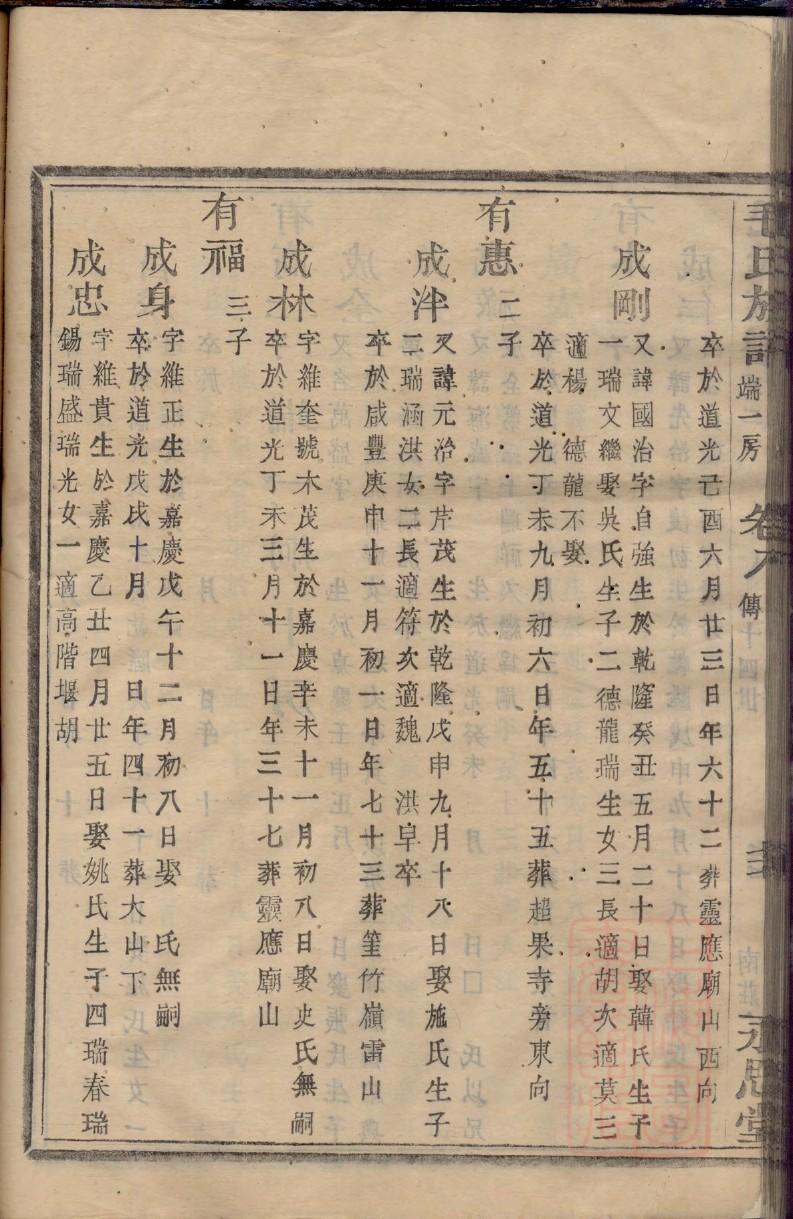 毛氏族譜 端一房 卷八 傳 十四世 南莊 永思堂
卒於道光己酉六月廿三日年六十二葬靈應廟山西向
成剛 又諱國治字自強生於乾隆癸丑五月二十日娶韓氏生子
一瑞文繼娶吳氏生子二德龍瑞生女三長適胡次適莫三
適楊 德龍不娶
卒於道光丁未九月初六日年五十五葬超果寺旁東向
有惠 二子
成泮 又諱元治字芹茂生於乾隆戊申九月十八日娶施氏生子
二瑞涵洪女二長適符次適魏 洪早卒
卒於咸豐庚申十一月初一日年七十三葬筀竹嶺雷山
成林 字維奎號木茂生於嘉慶辛未十一月初八日娶史氏無嗣
卒於道光丁未三月十一日年三十七葬靈應廟山
有福 三子
成身 字維正生於嘉慶戊午十二月初八日娶 氏無嗣
卒於道光戊戌十月 日年四十一葬大山下
成忠 字維貴生於嘉慶乙丑四月廿五日娶姚氏生子四瑞春瑞
錫瑞盛瑞光女一適高階堰胡